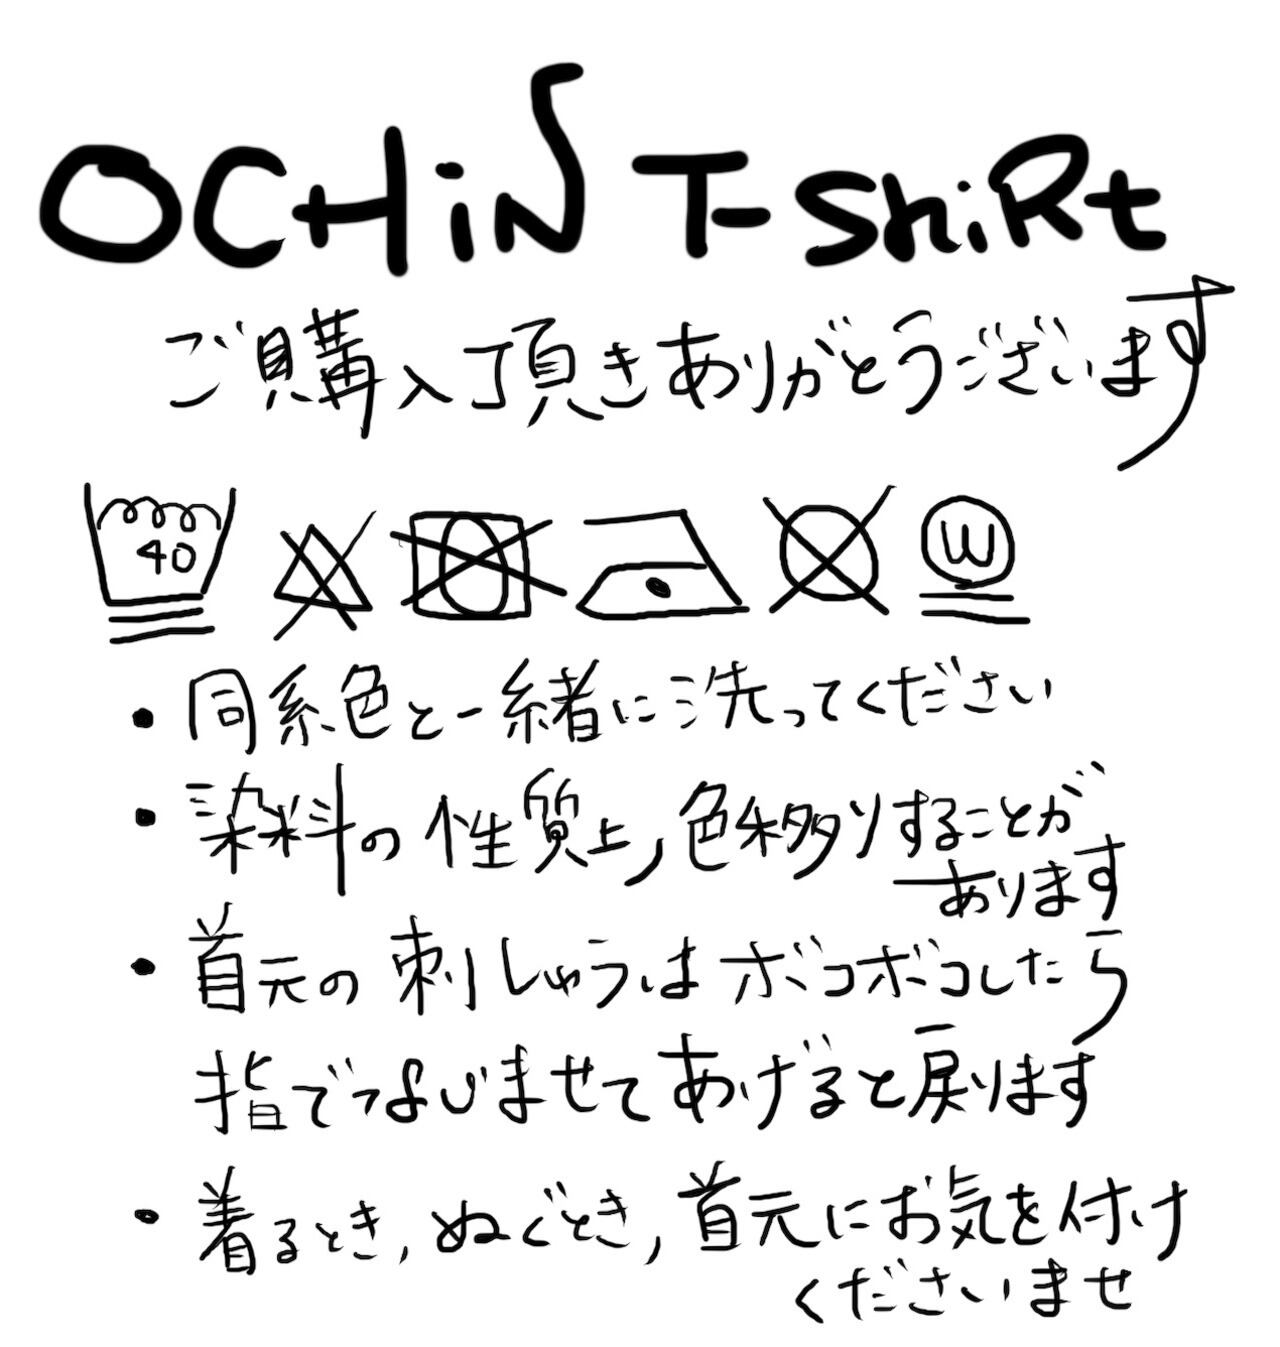 OCHiN T-shiRt
ご購入頂きありがとうございます
40
W
・同系色と一緒に洗ってください
・染料の性質上,色移りすることが
あります
・首元の刺しゅうはボコボコしたら
指でつよびませてあげると戻ります
・着るとき,ぬぐとき,首元にお気を付け
くださいませ